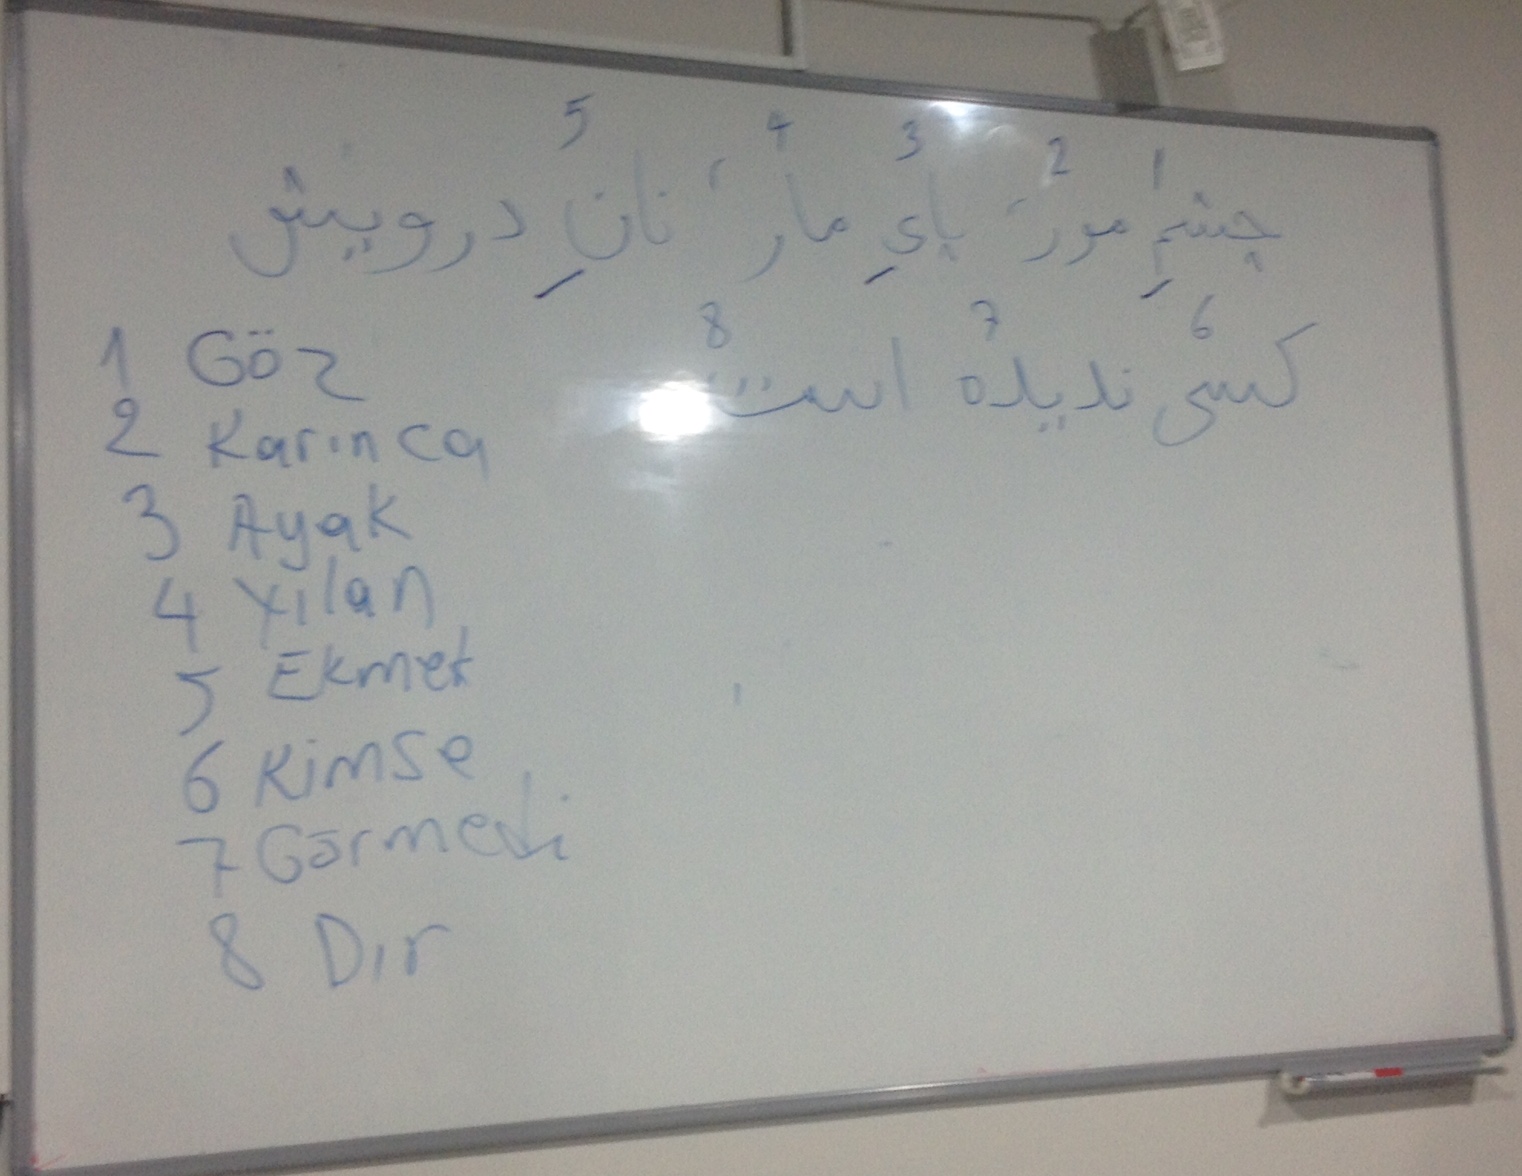 1 2 3 4 5
چشمِ مور، پایِ مار، نانِ درویش
6 7 8
کسی ندیده است
1 Göz
2 Karınca
3 Ayak
4 Yılan
5 Ekmek
6 Kimse
7 Görmedi
8 Dır